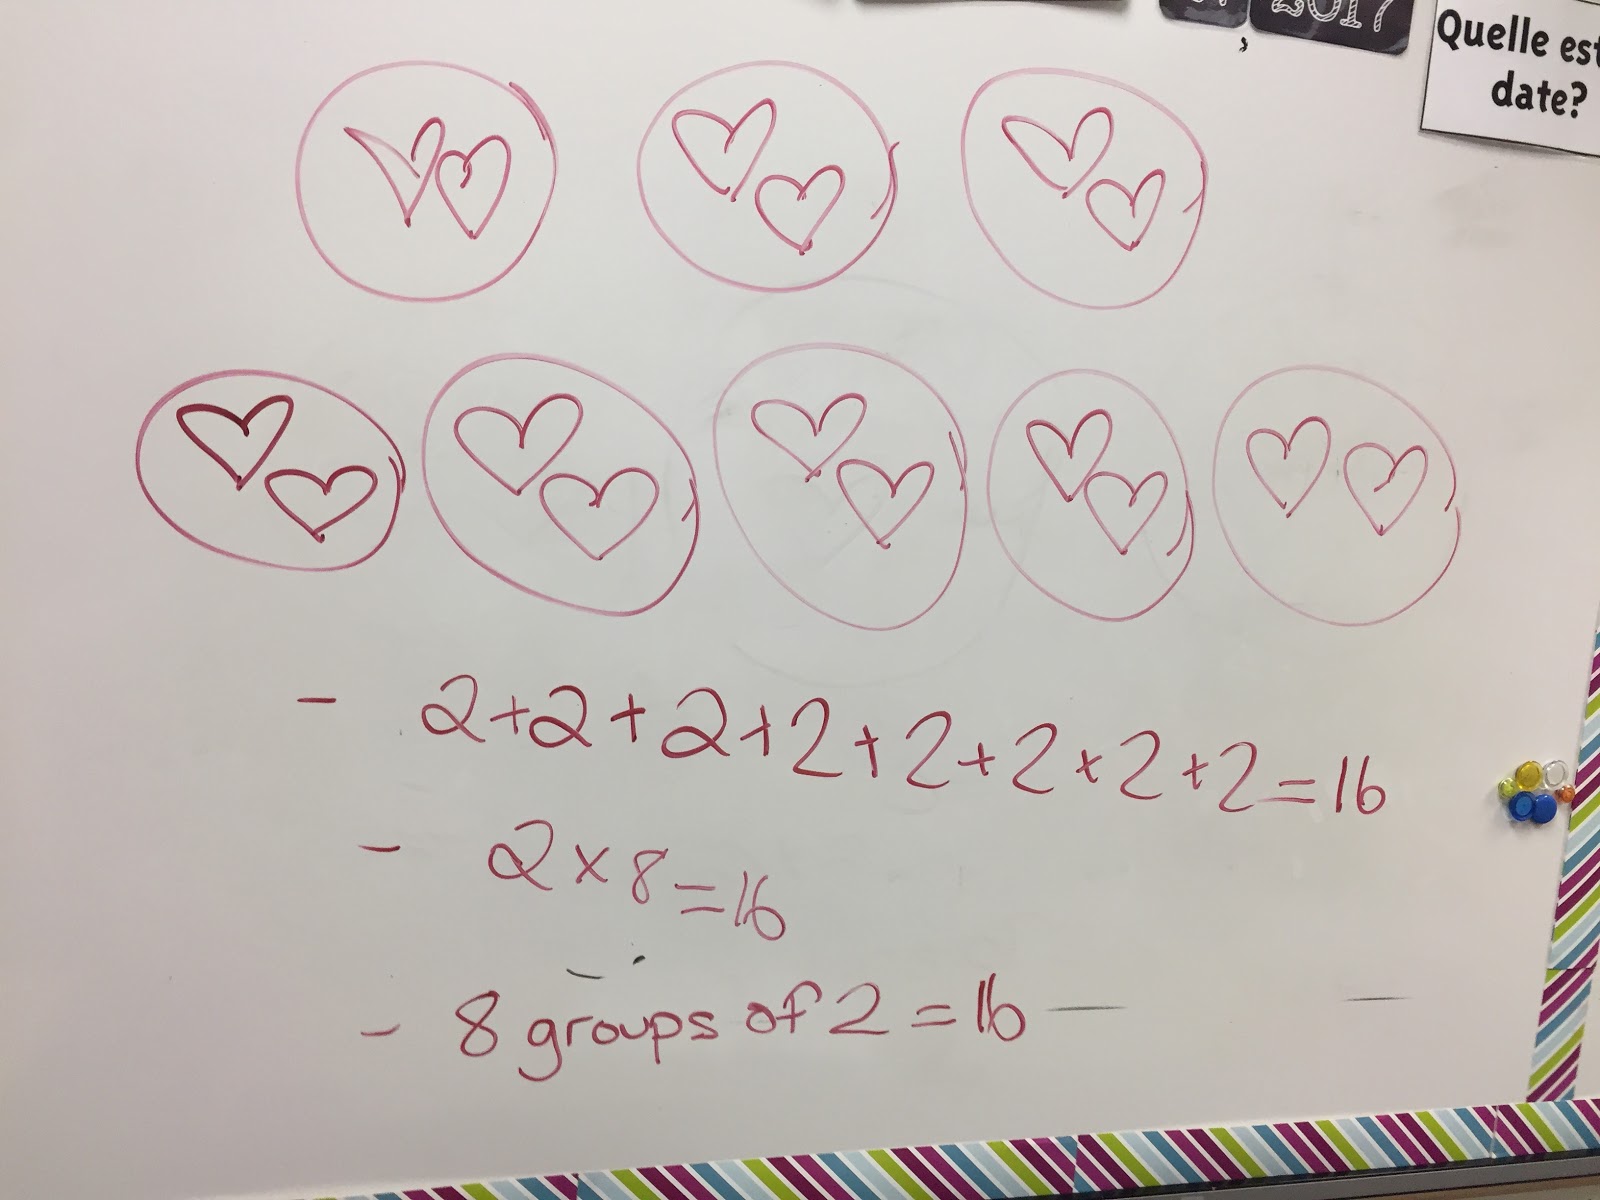 2017
Quelle est
date?
- 2+2+2+2+2+2+2+2=16
- 2×8=16
- 8 groups of 2 = 16